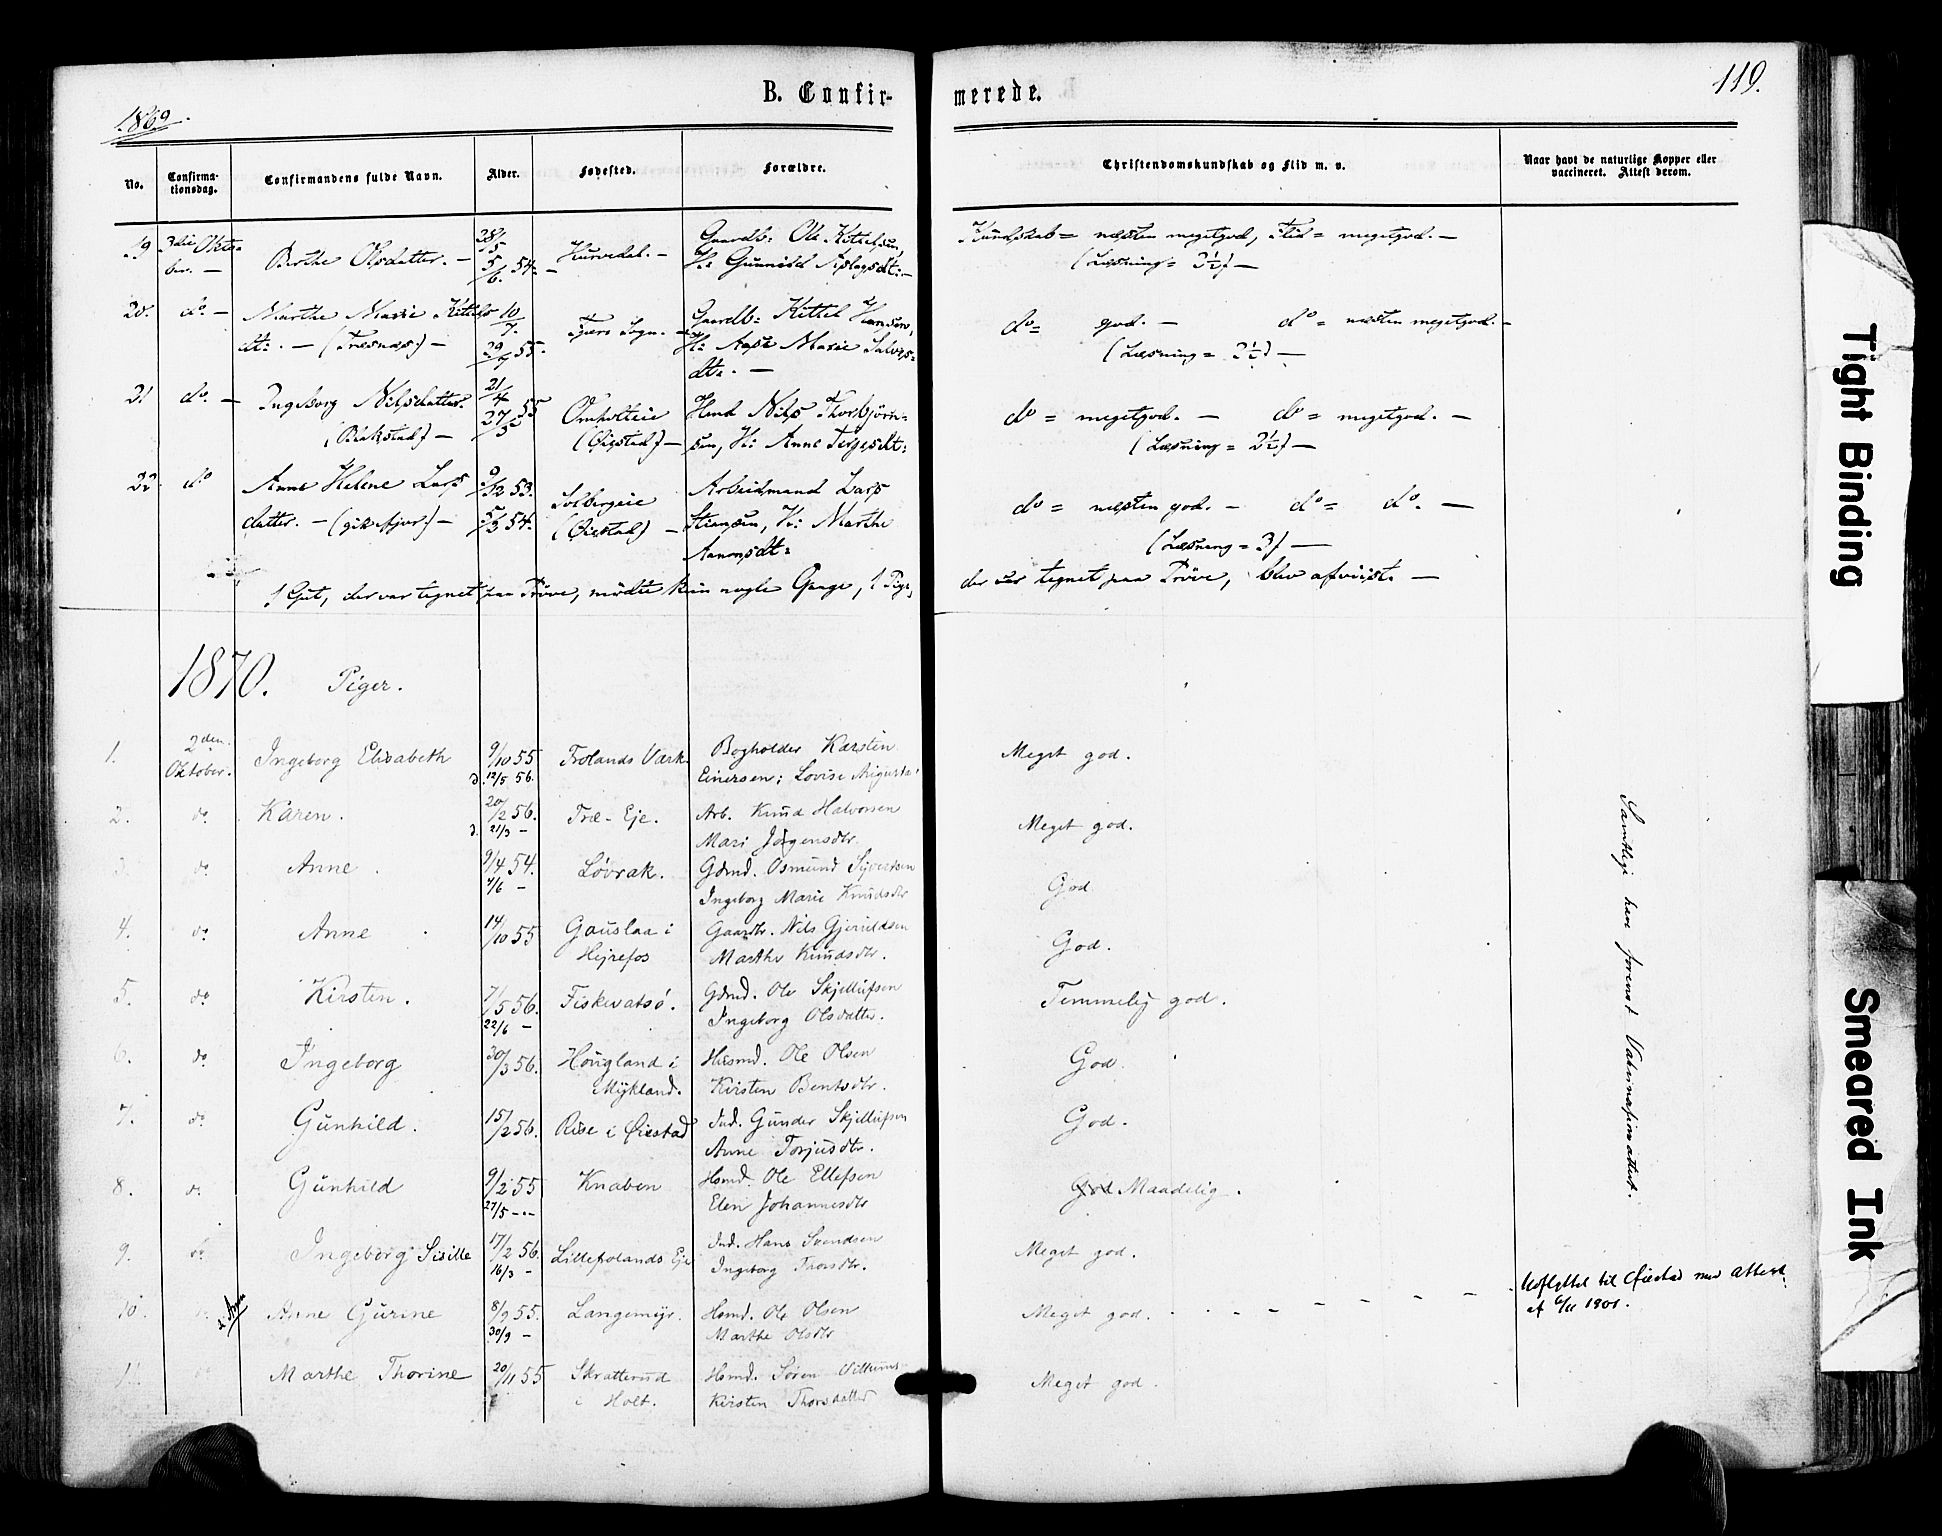 B. Confir-
merede.
119.
1869.
No.
Confirma-
tionsdag.
Confirmandens fulde Navn.
Alder.
Fødested.
Forældre.
Christendomskundskab og Flid m. v.
Naar havt de naturlige Kopper eller
vaccineret. Attest derom.
19 3die Okto- 28/5 Gaardb: Ole Kittelsen, Kundskab = næsten megetgod, Flid = megetgod. —
ber. — Berthe Olsdatter. — 5/6 54. — Hurvedal. — H: Gunnild Aslagsdt: — (Læsning = 3½) —
20. do — Marthe Marie Kittels 10/7. Fjære Sogn. — Gaardb: Kittel Hansen, do = god. — do = næsten megetgod. —
dt: — (Tresnæs) — 29/7 55. H: Aase Marie Salves= (Læsning = 2½) —
dt: —
21 do. — Ingeborg Nilsdatter. 21/4 55 Omholteie Hmd Nils Thorbjørn= do = megetgod. — do = megetgod. —
(Birkstad) — 27/5 (Øiestad) — sen, H: Anne Terjesdt: (Læsning = 2½) —
22. do Anne Helene Lars 9/12 53. Solbergeie Arbeidsmand Lars do = næsten god. — do = do. —
datter. — (gik ifjor.) — 5/3 54. (Øiestad) — Stiansen, K: Marthe (Læsning = 3) —
Aanonsdt:
1 Gut, der var tegnet paa Prøve, mødte kun nogle Gange, 1 Pige, der var tegnet paa Prøve, blev afviist. —
1870. Piger.
1. 2den Oktober. Ingeborg Elisabeth 9/10 55 Frolands Værk. Bogholder Karsten Meget god.
d. 12/5 56. Einersen; Lovise Augusta
2. do Karen. 20/2 56. Træ-Eje. Arb. Knud Halvorsen Meget god.
d. 21/3 — Mari Jørgensdtr.
3. do Anne. 9/4 54. Løvrak. Gdmd. Osmund Syvertsen God
7/6 — Ingeborg Marie Knudsdtr
4. do Anne 14/10 55 Gauslaa i Gaardbr. Nils Gjeruldsen God.
Hejrefos Marthe Knudsdtr.
5. do Kirsten. 7/5 56. Fiskevatsø. Gdmd. Ole Skjellufsen Temmelig god.
22/6 — Ingeborg Olsdatter.
6. do Ingeborg 30/3 56. Hougland i Husmd. Ole Olsen God.
Mykland. Kirsten Bentsdtr.
7. do Gunhild. 15/2 56. Rise i Øiestad Ind. Gunder Skjellufsen God.
Anne Torjusdtr.
8. do Gunhild 9/2 55 Knaben Hsmd. Ole Ellefsen God Maadelig.
27/5 — Elen Johannesdtr
9. do Ingeborg Sisille 17/2 56. Lillefrolands Eje Ind. Hans Svendsen Meget god.
16/3 — Ingeborg Thorsdtr.
10. do Anne Gurine 8/9 55. Langemyr. Hsmd. Ole Olsen Meget god. — — — — Udflyttet til Øiestad med Attest
30/9 — Marthe Olsdtr af 6/11 1901.
11. do Marthe Thorine 20/11 55 Skratterud Hsmd. Søren Meget god.
i Holt. Kirsten Thorsdatter
Samtlige have forevist Vakcinationsattest.
Tight Binding
Smeared Ink